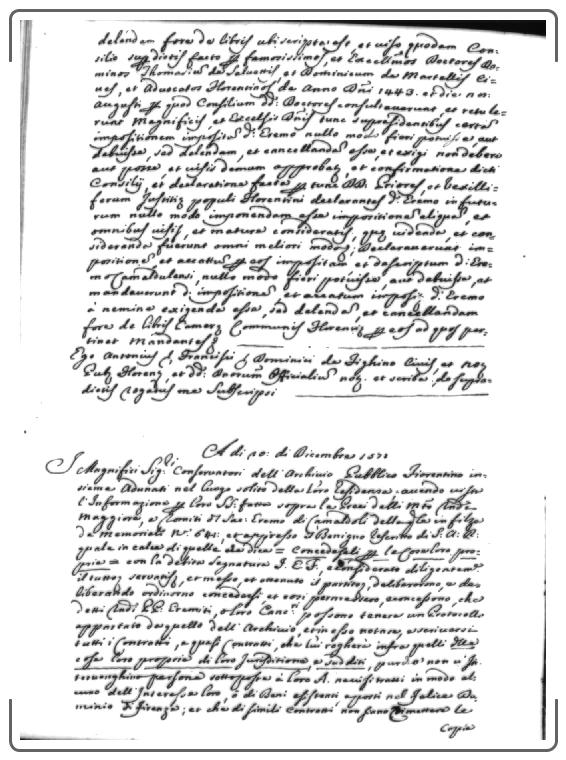 delendam fore de libris ubi scripta est, et viso quodam Con-
silio sup. dictis facto per famosissimos, et Excellmos Doctores Do-
minos Thomasium de Salvettis, et Dominicum de Martellis Ci-
ves, et Advocatos Florentinos de Anno Dni 1443. et die 20.
Augusti per quod Consilium dd: Doctores consultaverunt, et retule-
runt Magnificis, et Excelsis Dnis tunc supresidentibus certas
impositionem impositas d: Eremo nullo modo fieri potuisse, aut
debuisse, sed delendam, et cancellandam esse, et exigi non debere
aut posse, et visis demum approbat, et confirmatione dicti
Consilij, et declaratione facta per tunc DD. Priores, et Vexilli-
ferum Justitie populi Florentini declarantes d: Eremo in futu-
rum nullo modo imponendam esse impositione aliqua, et
omnibus visis, et mature consideratis, que videnda, et con-
sideranda fuerunt omni meliori modo; Declaraverunt im-
positione, et accattu per eos impositam, et descriptum d: Ere-
mo Camaldulensi nullo modo fieri potuisse, aut debuisse, et
mandaverunt d: impositione, et accatum imposi: d: Eremo
à nemine exigenda esse, sed delenda, et cancellandam
fore de libris Camere Communis Florentie per eos ad quos per-
tinet Mandantes
Ego Antonius Francisci Dominici de Fighino Civis, et not
Pub Florent, et dd: Officialiu not. et scriba de supra-
dictis rogatus me Subscripsi
A di 20: di Dicembre 157
I Magnifici Sigri Conservatori dell' Archivio Pubblico Fiorentino in-
sieme Adunati nel luogo solito della loro residenza: avendo vista
l'Informazione per loro SS: fatta sopra le Preci delli Mto Rndi
Maggiore, e Romiti di Sac: Eremo di Camaldoli della in filza
de Memoriali N: 641: et appresso Il Benigno rescritto di S. A. S:
quale in calce di quelle dice = Concedesili per le Cose loro pro-
prie = con la detta Segnatura I. E. F. e considerato diligentem:
il tutto, servatis, et messo, et ottenuto il partito, deliberorono, e de-
liberando ordinorno concedersi et cosi permessero, e concessono, che
detti Rndi PP: Eremiti, o loro Canc: possono tenere un Protocollo
appartato da quello dell' Archivio, et in esso notare, e scrivervi
tutti i Contratti, e quasi Contratti, che lui rogherà infra quelli
cose loro proprie di loro Jurisditione e sudditi, purche non v' In-
tervenghino persone sottoposte a loro A. ne vi si tratti in modo al-
cuno dell' Interesse loro, o di Beni esistenti e posti nel felice Do-
minio di Firenze; et che di simili contratti non siano rimettere le
Coppie